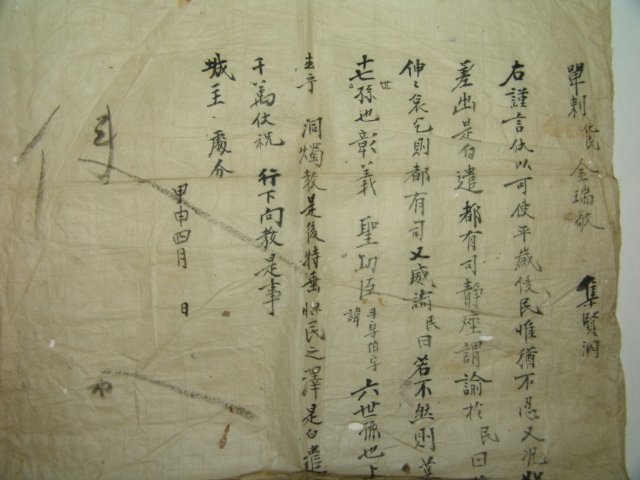 單刺 化民 金瑞敬 集賢洞
右謹言伏以可使平歲役民惟猶不忍又況
差出是白遣都有司靜座謂諭於民曰
伸〻哀乞則都有司又威諭民曰若不然則
十七世孫也彰義 聖功臣 諱 字伯宇 六世孫也上
洞燭敎是後特垂 民之澤是白遣
千萬伏祝 行下向敎是事
城主 處分
甲申四月 日
使